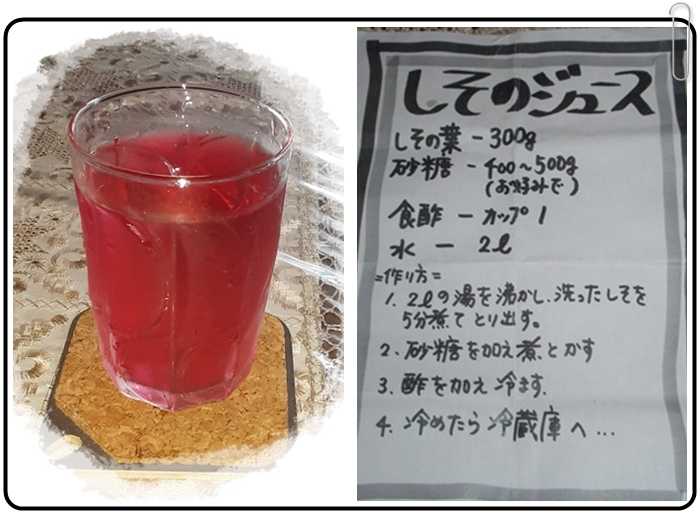 しそのジュース
しその葉 - 300g
砂糖 - 400~500g
(お好みで)
食酢 - カップ1
水 - 2ℓ
=作り方=
1. 2ℓの湯を沸かし、洗ったしそを
5分煮てとり出す。
2. 砂糖を加え煮とかす
3. 酢を加え冷ます.
4. 冷めたら冷蔵庫へ...